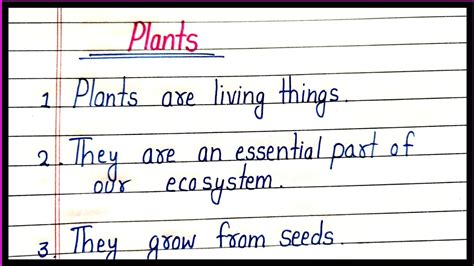 Plants
1 Plants are living things.
2. They are an essential part of
our ecosystem.
3. They grow from seeds.